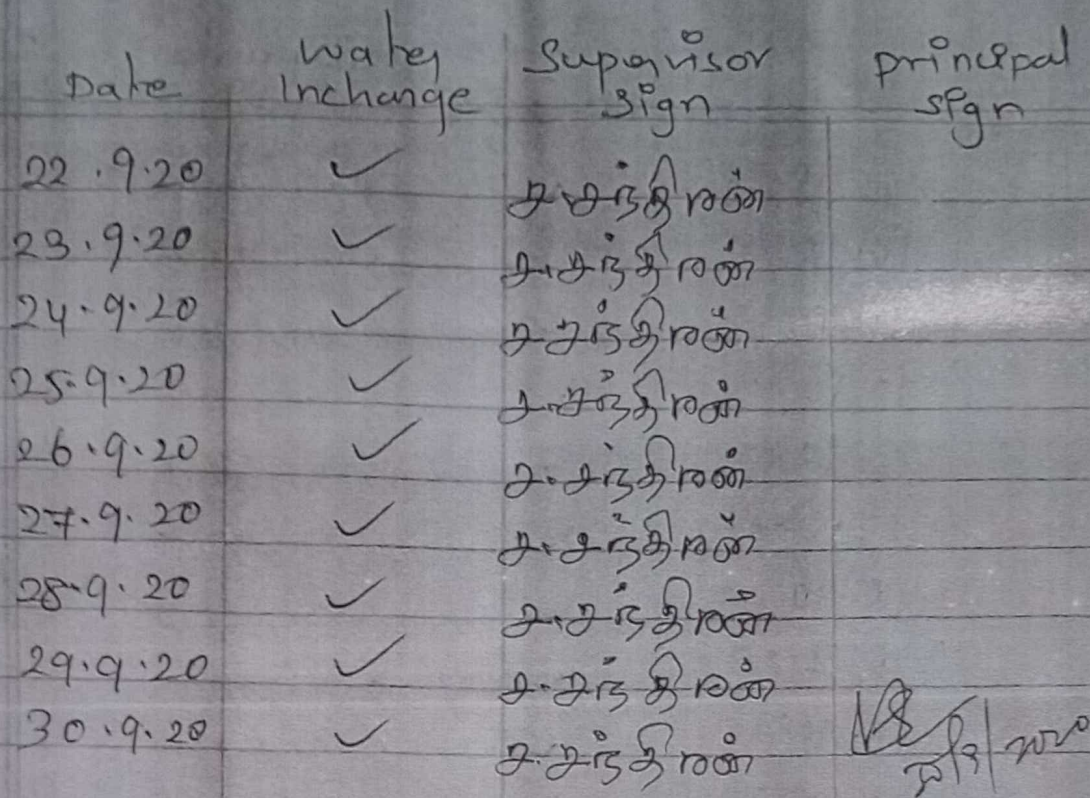 Date Water Inchange Supervisor Sign principal sign
22.9.20 ✓ ச.சந்திரன்
23.9.20 ✓ ச.சந்திரன்
24.9.20 ✓ ச.சந்திரன்
25.9.20 ✓ ச.சந்திரன்
26.9.20 ✓ ச.சந்திரன்
27.9.20 ✓ ச.சந்திரன்
28.9.20 ✓ ச.சந்திரன்
29.9.20 ✓ ச.சந்திரன்
30.9.20 ✓ ச.சந்திரன்